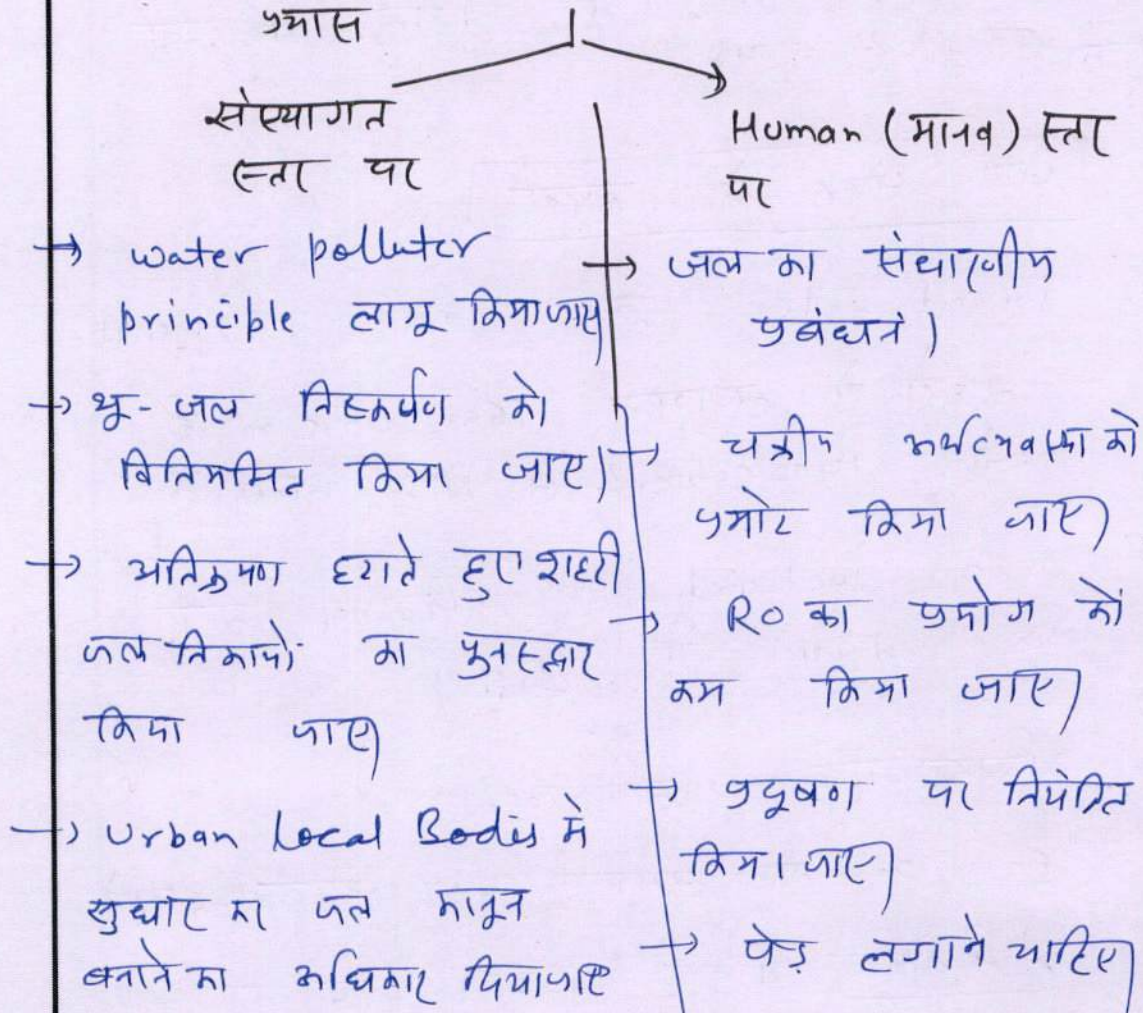 प्रयास
संस्थागत
स्तर पर
→ water polluter
principle लागू किया जाए।
→ भू-जल निष्कर्षण को
विनियमित किया जाए।
→ अतिक्रमण हटाते हुए शहरी
जल निकायों का पुनरुद्धार
किया जाए।
→ Urban Local Bodis में
सुधार का जल कानून
बनाने का अधिकार दिया जाए
Human (मानव) स्तर
पर
→ जल का संधारणीय
प्रबंधन।
→ चक्रीय अर्थव्यवस्था को
प्रमोट किया जाए।
→ RO का प्रयोग को
कम किया जाए।
→ प्रदूषण पर नियंत्रित
किया जाए।
→ पेड़ लगाने चाहिए।